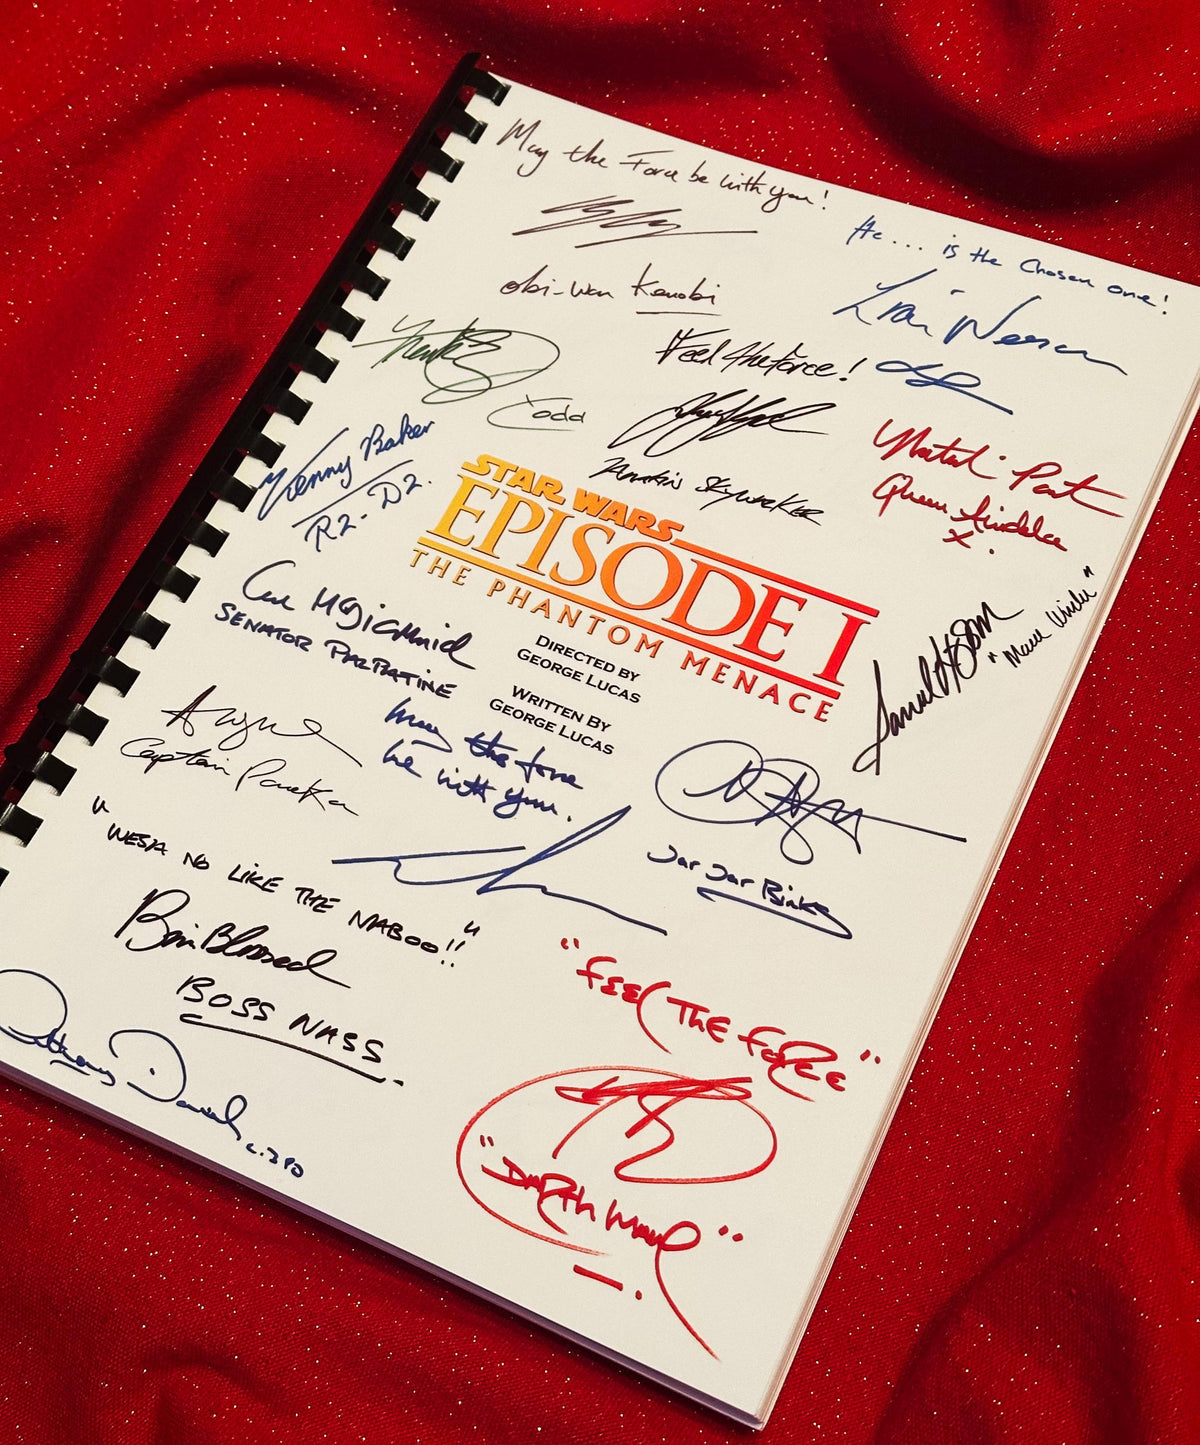 May the Force be with you!
He ... is the Chosen one!
Obi-Wan Kenobi
Liam Neeson
Feel the force!
Yoda
Anakin Skywalker
Kenny Baker
R2-D2.
Natalie Port
Queen Amidala
x.
STAR WARS
EPISODE I
THE PHANTOM MENACE
DIRECTED BY
GEORGE LUCAS
WRITTEN BY
GEORGE LUCAS
Samuel
"Mace Windu"
Ian McDiarmid
SENATOR PALPATINE
Captain Panaka
may the force
be with you.
Jar Jar Binks
"WESA NO LIKE THE NABOO!!"
Brian Blessed
BOSS NASS.
Anthony Daniels
C-3PO
"FEEL THE FORCE"
"DARTH MAUL"